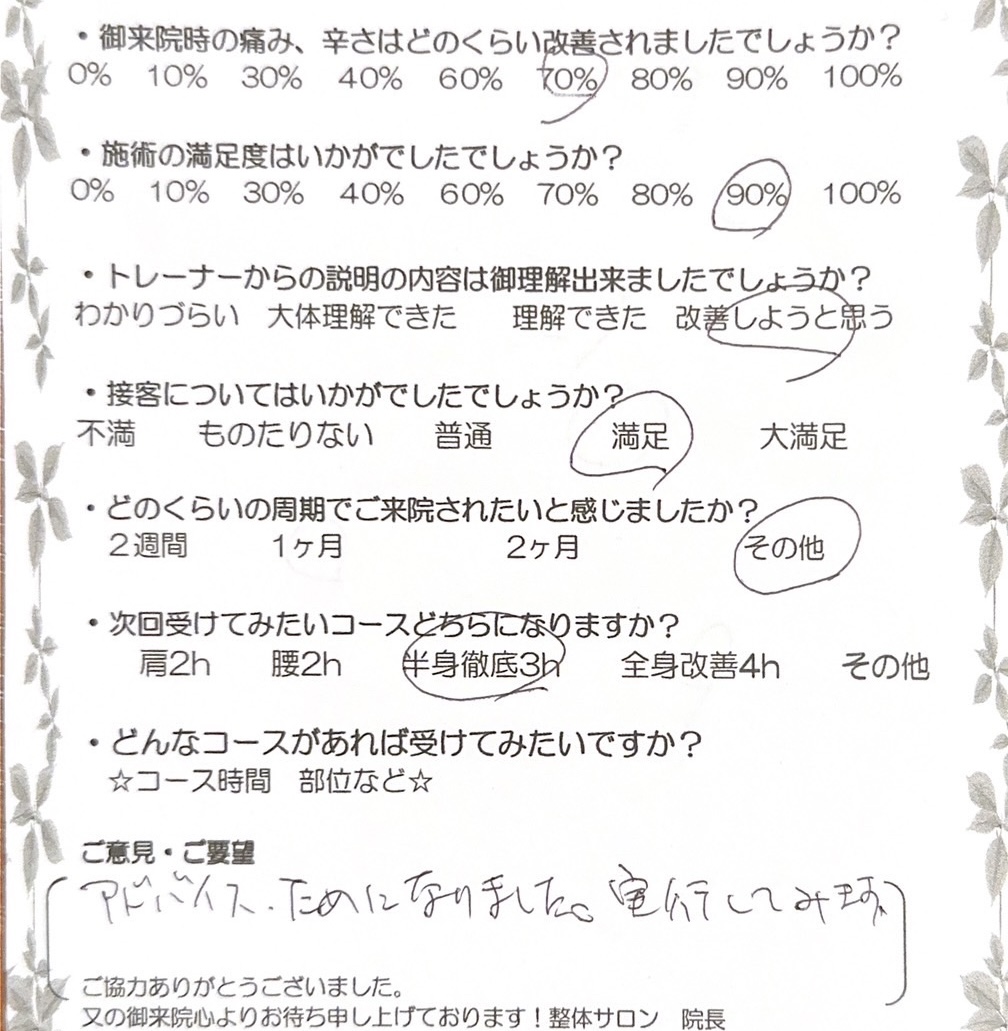 ・御来院時の痛み、辛さはどのくらい改善されましたでしょうか？
0% 10% 30% 40% 60% 70% 80% 90% 100%
・施術の満足度はいかがでしたでしょうか？
0% 10% 30% 40% 60% 70% 80% 90% 100%
・トレーナーからの説明の内容は御理解出来ましたでしょうか？
わかりづらい 大体理解できた 理解できた 改善しようと思う
・接客についてはいかがでしたでしょうか？
不満 ものたりない 普通 満足 大満足
・どのくらいの周期でご来院されたいと感じましたか？
２週間 １ヶ月 ２ヶ月 その他
・次回受けてみたいコースどちらになりますか？
肩2h 腰2h 半身徹底3h 全身改善4h その他
・どんなコースがあれば受けてみたいですか？
☆コース時間 部位など☆
ご意見・ご要望
アドバイス、ためになりました。実行してみます。
ご協力ありがとうございました。
又の御来院心よりお待ち申し上げております！整体サロン 院長